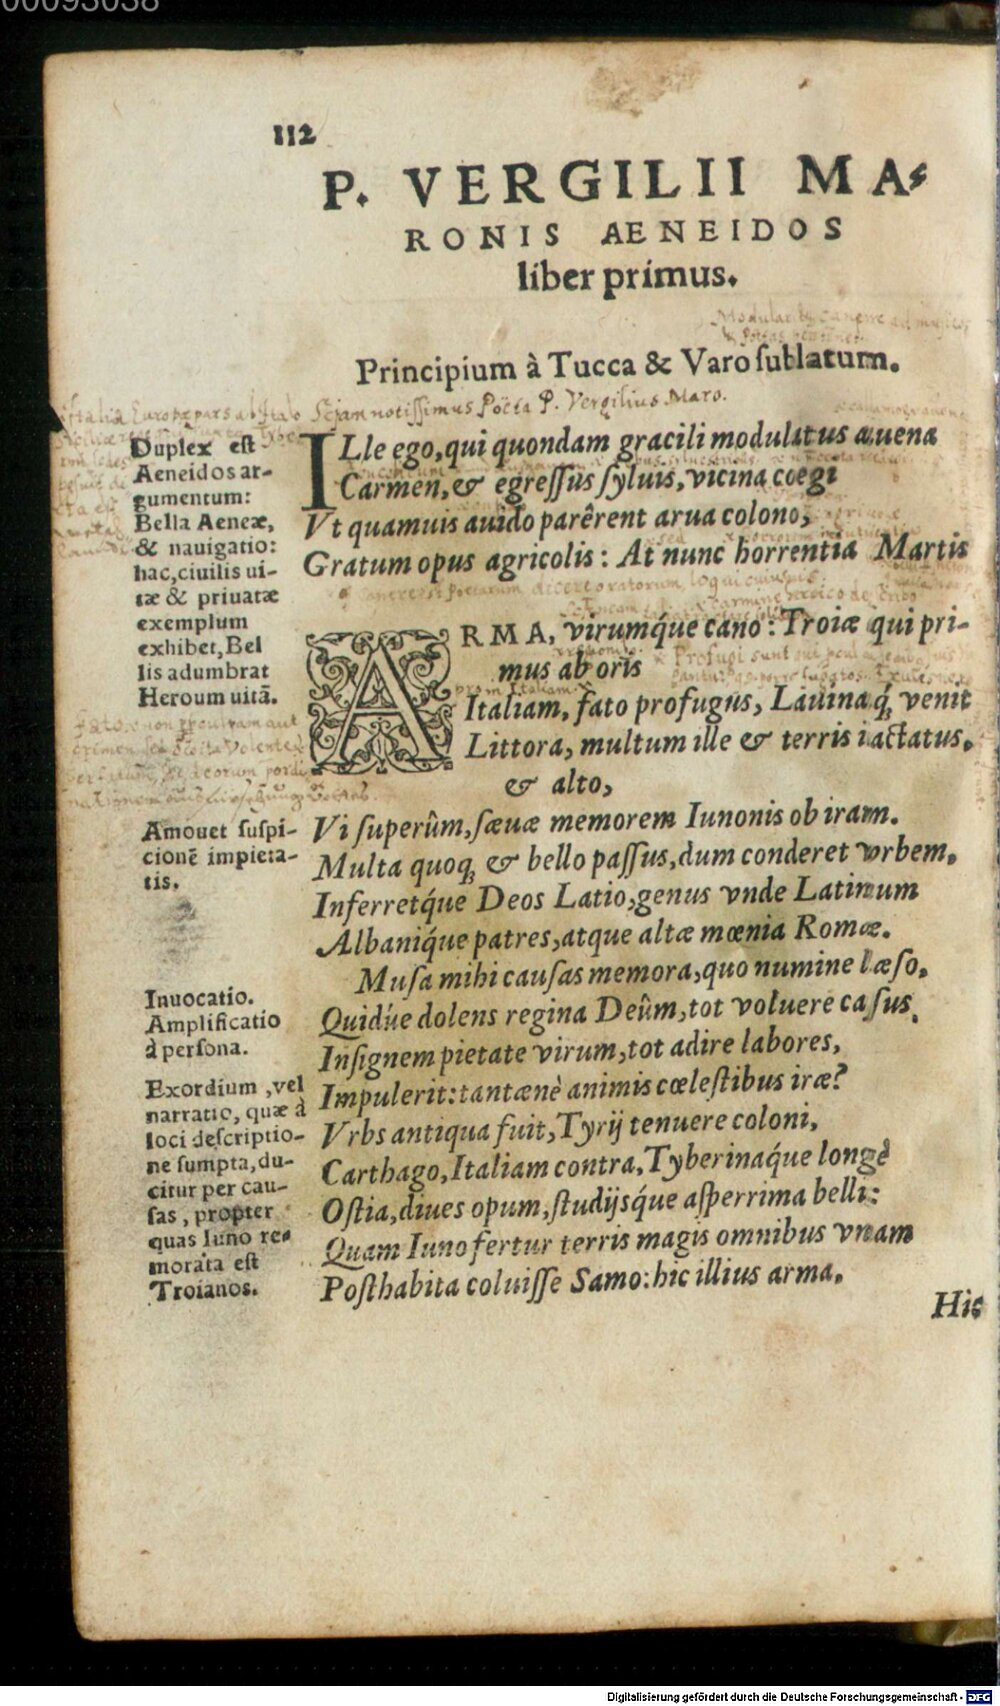 00093038
112
P. VERGILII MA-
RONIS AENEIDOS
liber primus.
Principium à Tucca & Varo sublatum.
Sejam notissimus Poëta P. Vergilius Maro.
Duplex est
Aeneidos ar-
gumentum:
Bella Aeneæ,
& nauigatio:
hac,ciuilis ui-
tæ & priuatæ
exemplum
exhibet,Bel
lis adumbrat
Heroum uitã.
ILle ego,qui quondam gracili modulatus auena
Carmen,& egressus syluis,vicina coegi
Vt quamuis auido parêrent arua colono,
Gratum opus agricolis: At nunc horrentia Martis
ARMA, virumq́ue cano: Troiæ qui pri-
mus ab oris
Italiam, fato profugus, Lauinaq́; venit
Littora, multum ille & terris iactatus,
& alto,
Amouet suspi-
cionẽ impieta-
tis.
Vi superûm,sæuæ memorem Iunonis ob iram.
Multa quoq; & bello passus,dum conderet vrbem,
Inferretq́ue Deos Latio,genus vnde Latinum
Albaniq́ue patres,atque altæ mœnia Romæ.
Inuocatio.
Amplificatio
à persona.
Musa mihi causas memora,quo numine læso,
Quidúe dolens regina Deûm,tot voluere casus,
Insignem pietate virum,tot adire labores,
Exordium ,vel
narratio, quæ à
loci descriptio-
ne sumpta,du-
citur per cau-
sas , propter
quas Iuno re-
morata est
Troianos.
Impulerit:tantænè animis cœlestibus iræ?
Vrbs antiqua fuit,Tyrij tenuere coloni,
Carthago,Italiam contra,Tyberinaq́ue longè
Ostia,diues opum,studijsq́ue asperrima belli:
Quam Iuno fertur terris magis omnibus vnam
Posthabita coluisse Samo:hic illius arma,
Hic
Digitalisierung gefördert durch die Deutsche Forschungsgemeinschaft - DFG